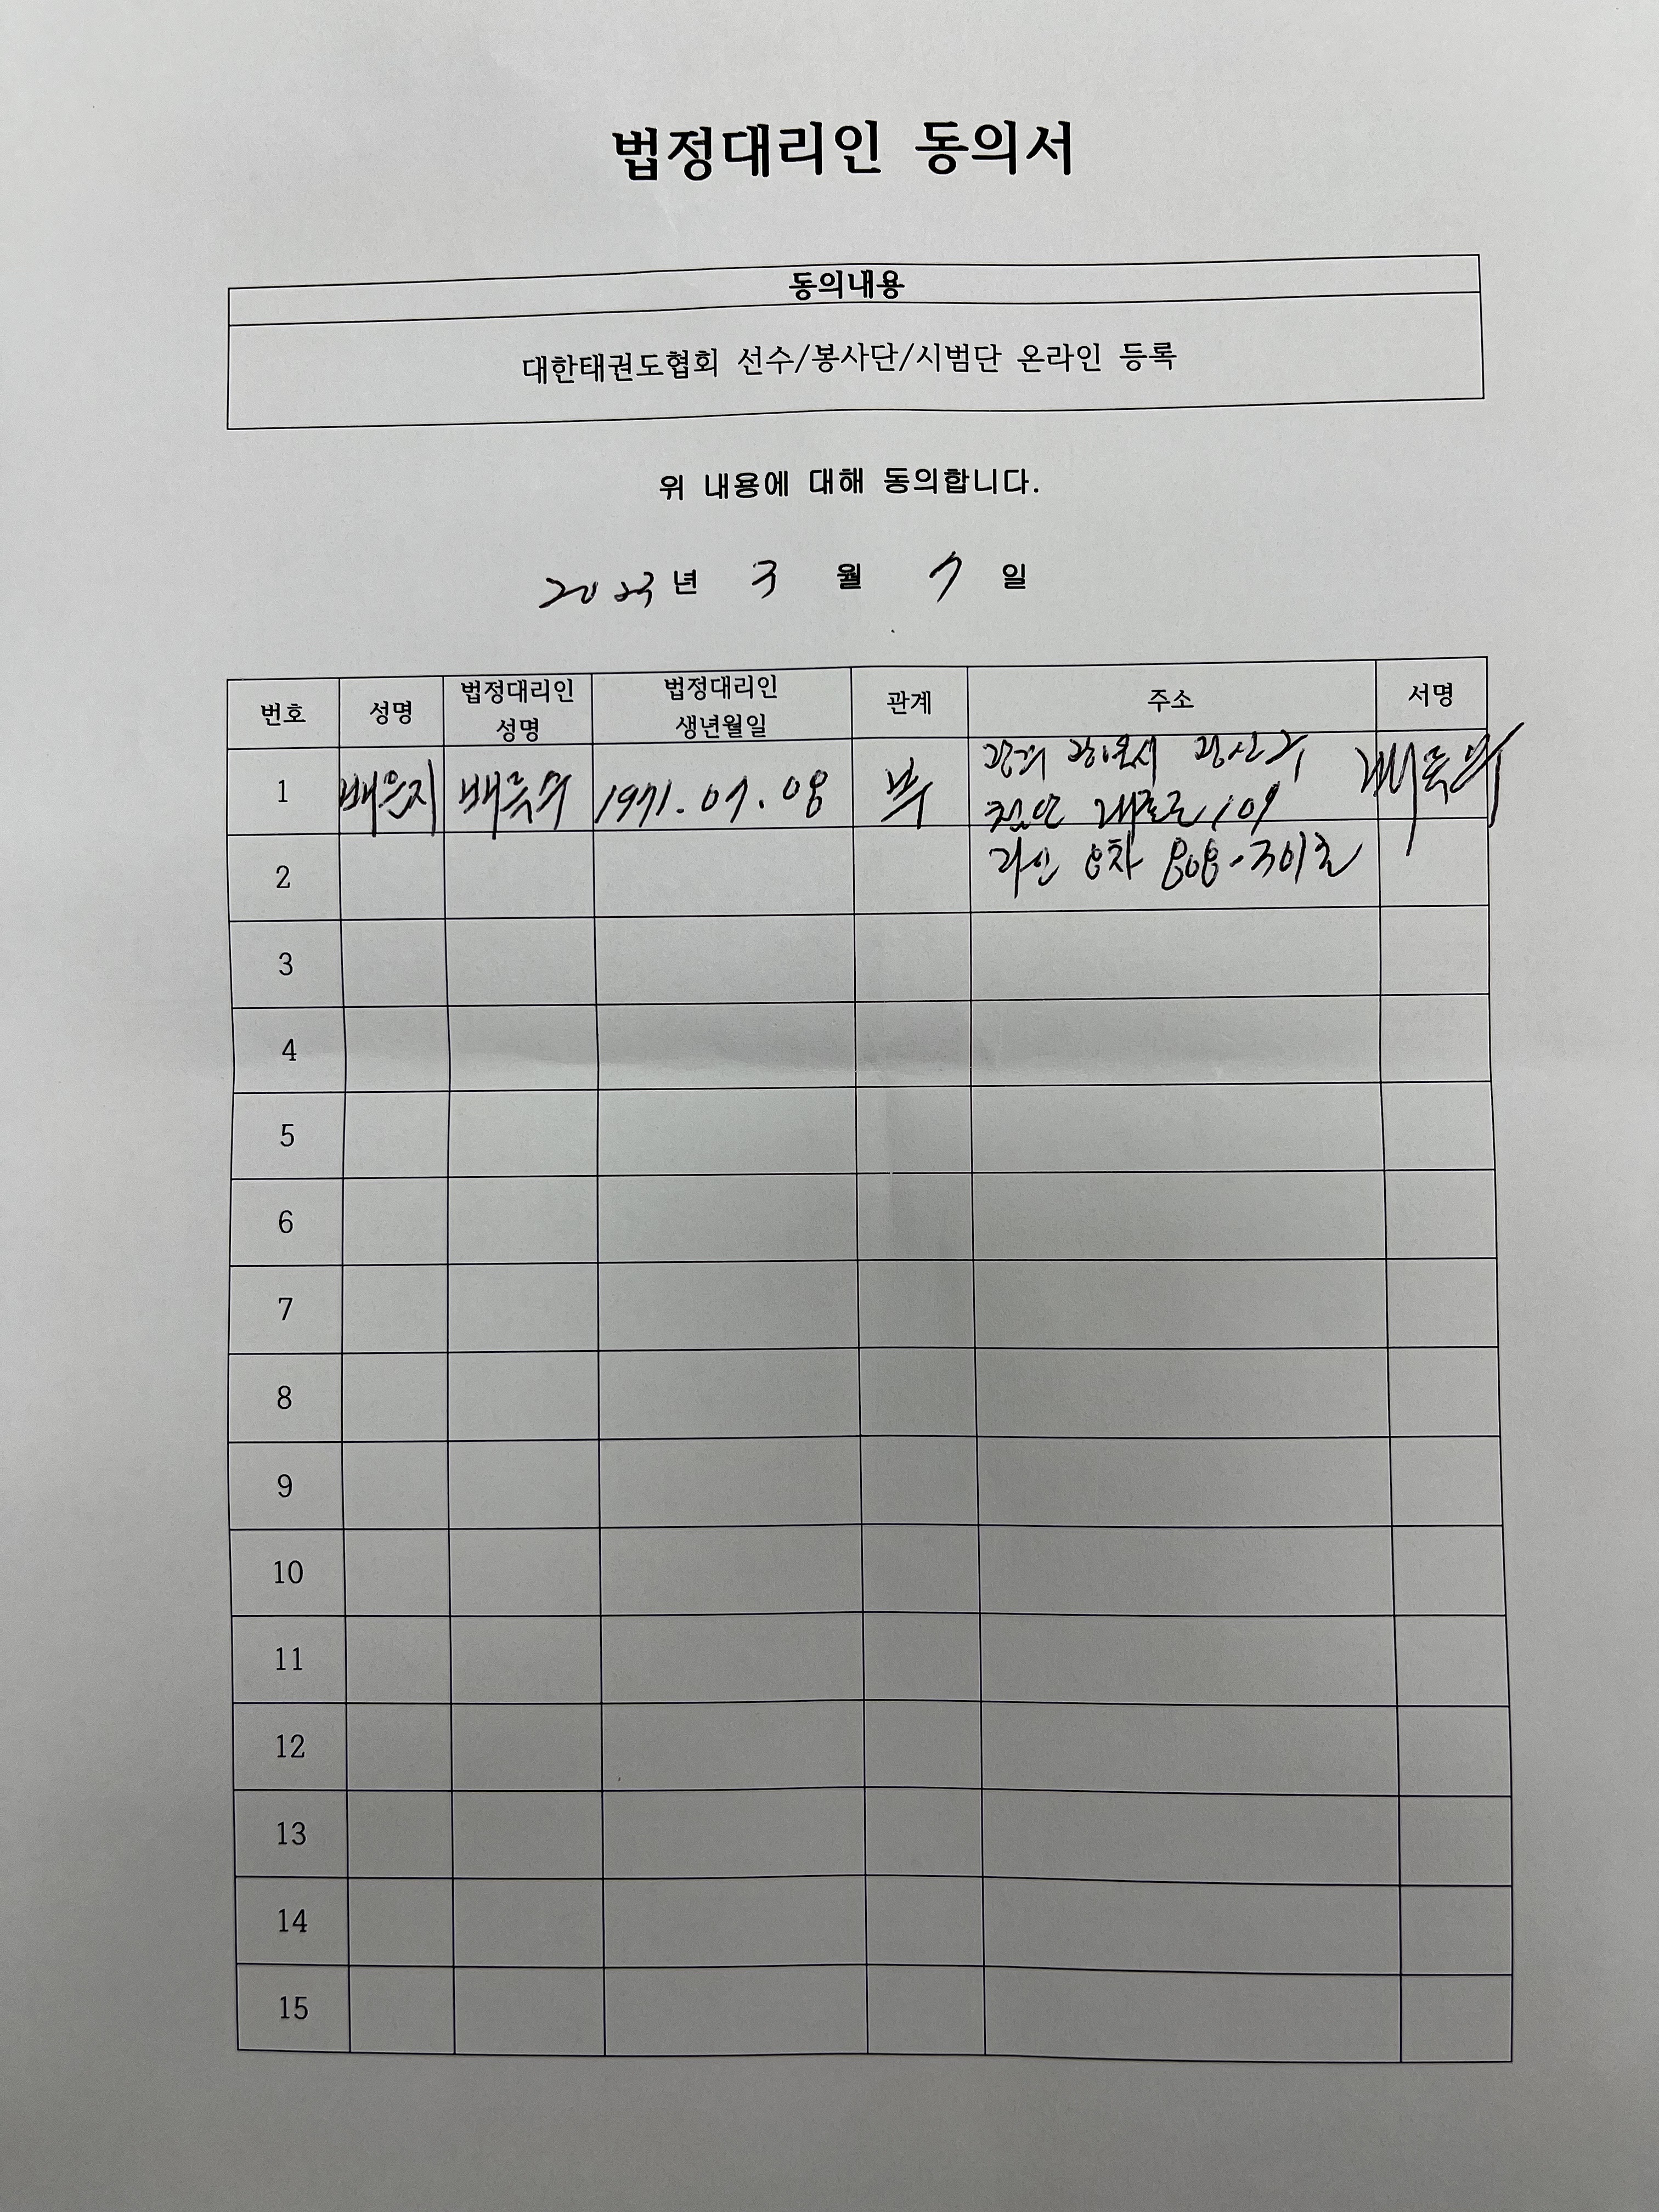 법정대리인 동의서
동의내용
대한태권도협회 선수/봉사단/시범단 온라인 등록
위 내용에 대해 동의합니다.
2023년 3 월 7 일
번호 성명 법정대리인 성명 법정대리인 생년월일 관계 주소 서명
1 배은지 1971.07.08 부 광산구
첨단 109
8차 808-301호
2
3
4
5
6
7
8
9
10
11
12
13
14
15